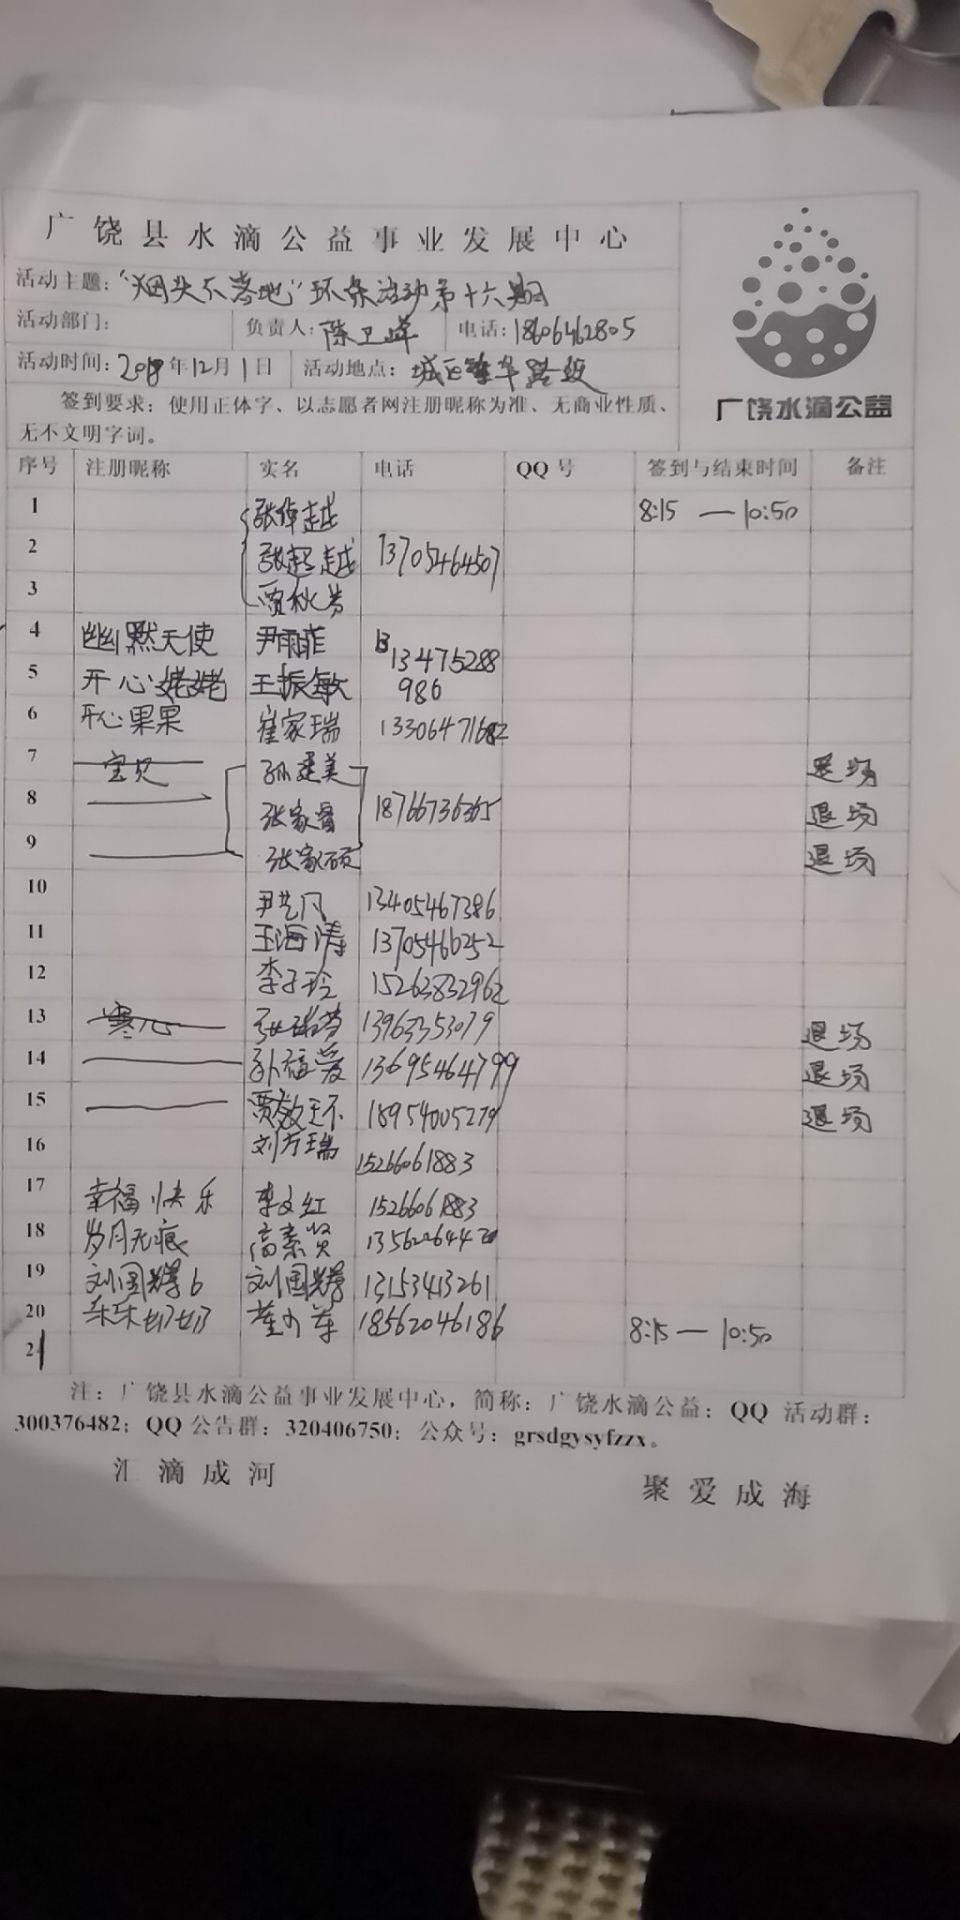 广饶县水滴公益事业发展中心
活动主题：“烟头不落地”环保活动第十六期
活动部门： 负责人：陈卫峰 电话：18606462805
活动时间：2018年12月1日 活动地点：城区 路段
签到要求：使用正体字、以志愿者网注册昵称为准、无商业性质、
无不文明字词。
广饶水滴公益
序号 注册昵称 实名 电话 QQ号 签到与结束时间 备注
1 张倬越 8:15 — 10:50
2 张起越 13705464507
3 贾秋芳
4 幽默天使 尹雨菲 13475288
5 开心姥姥 王振敏 986
6 开心果果 崔家瑞 13306471682
7 宝贝 孙建美 退场
8 张家睿 18766736365 退场
9 张家硕 退场
10 尹艺凡 13405467386
11 王海涛 13705466252
12 李子玲 15263832962
13 寒心 13963353079 退场
14 13695464799 退场
15 贾效 18954005279 退场
16 刘方瑞 15266061883
17 幸福快乐 李文红 15266061883
18 岁月无痕 高素贤
19 刘国辉6 刘国辉 13153413261
20 乐乐奶奶 董小苹 18562046186 8:15 — 10:50
21
注：广饶县水滴公益事业发展中心，简称：广饶水滴公益；QQ 活动群：
300376482；QQ公告群：320406750；公众号：grsdgysyfzzx。
汇滴成河 聚爱成海